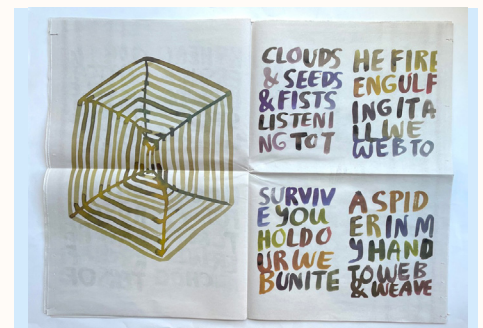 CLOUDS
& SEEDS
& FISTS
LISTENI
NG TO T
HE FIRE
ENGULF
ING IT A
LL WE
WEB TO
SURVIV
E YOU
HOLD O
UR WE
BUNITE
A SPID
ER IN M
Y HAND
TO WEB
& WEAVE